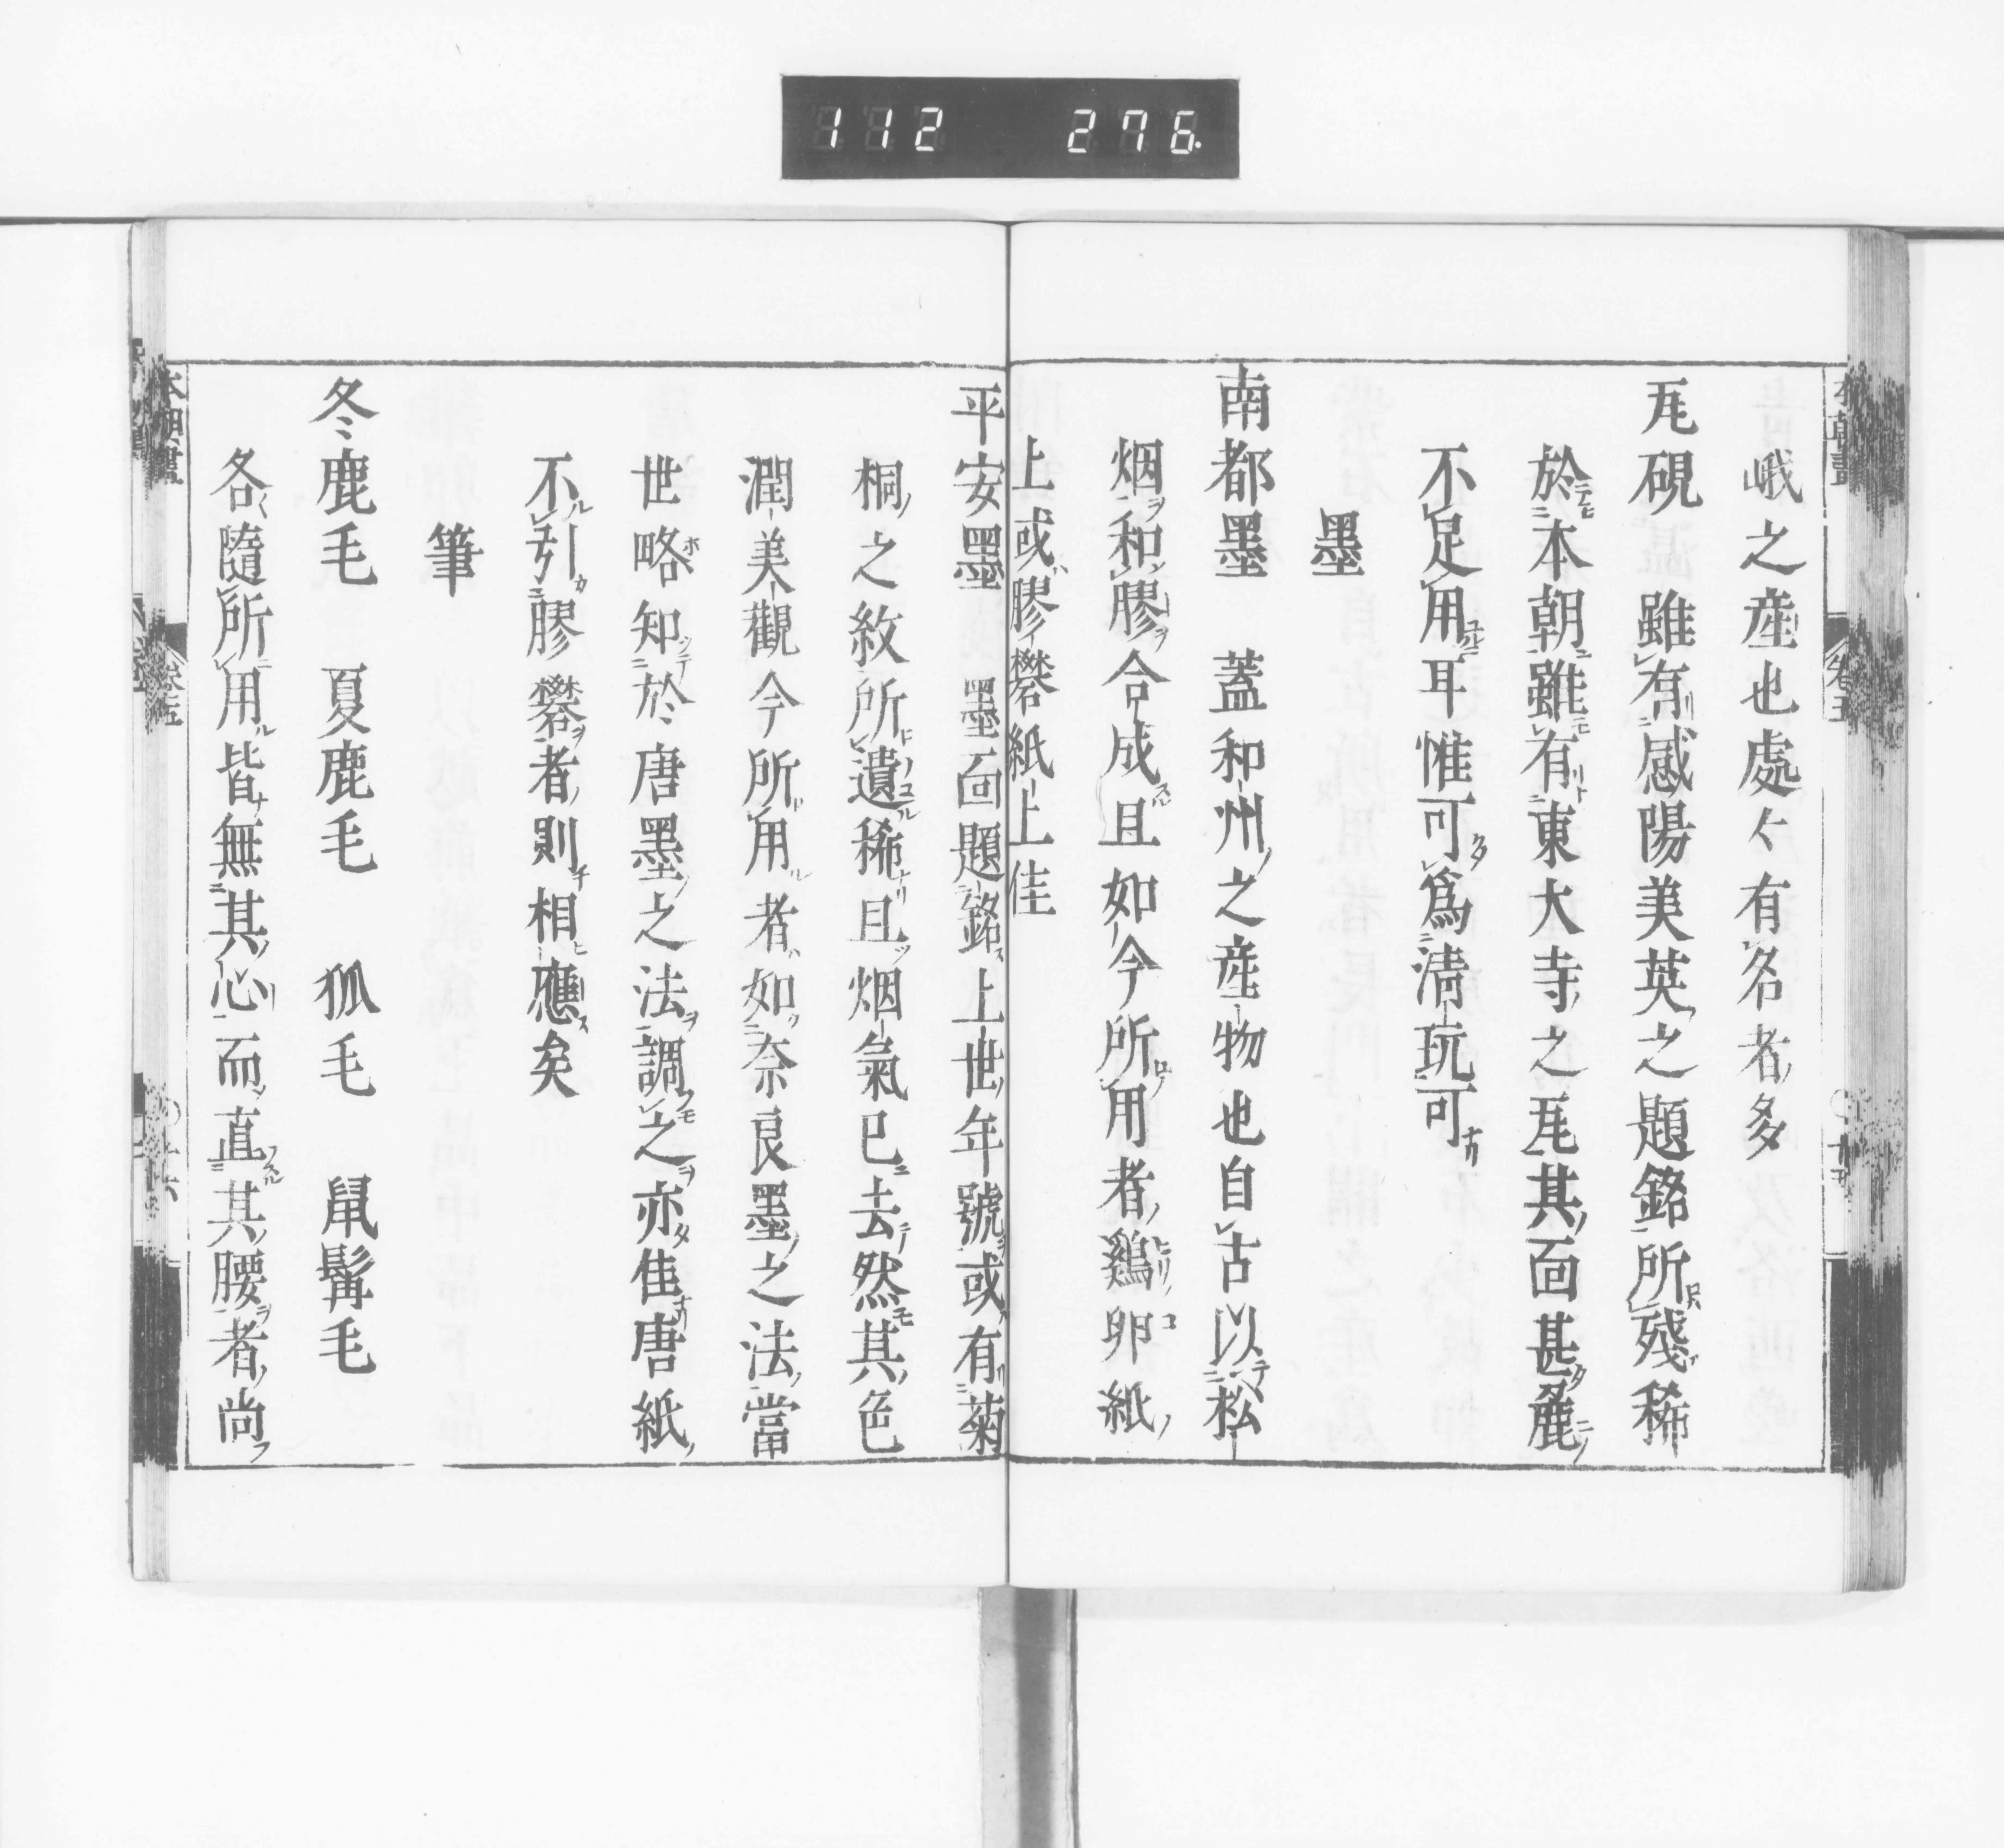 112 276.
峨之産也處々有名者多
瓦硯 雖有感陽美英之題銘所殘稀
於本朝雖有東大寺之瓦其面甚麁
不足用耳惟可爲清玩可
墨
南都墨 蓋和州之産物也自古以松
烟和膠合成且如今所用者鷄卵紙
上或膠礬紙上佳
平安墨 墨面題銘上世年號或有菊
桐之紋所遺稀且烟氣已去然其色
潤美觀今所用者如奈良墨之法當
世略知於唐墨之法調之亦佳唐紙
不引膠礬者則相應矣
筆
冬鹿毛 夏鹿毛 狐毛 鼠髯毛
各隨所用皆無其心而直其腰者尚